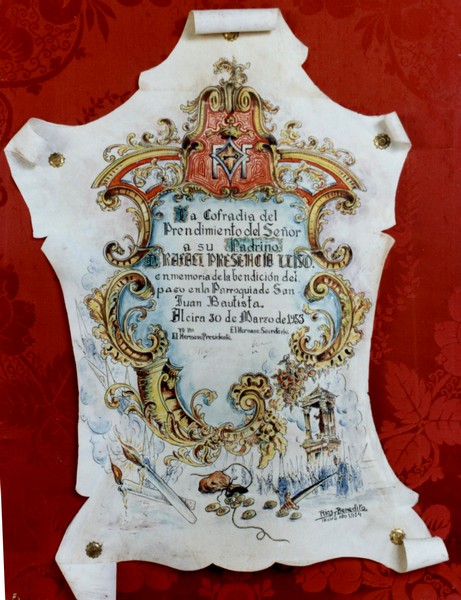 La Cofradia del
Prendimiento del Señor
a su Padrino
D. RAFAEL PRESENCIA
en memoria de la bendición del
paso en la Parroquia de San
Juan Bautista.
Alcira 30 de Marzo de 1953
Vº Bº El Hermano Secretario
El Hermano Presidente